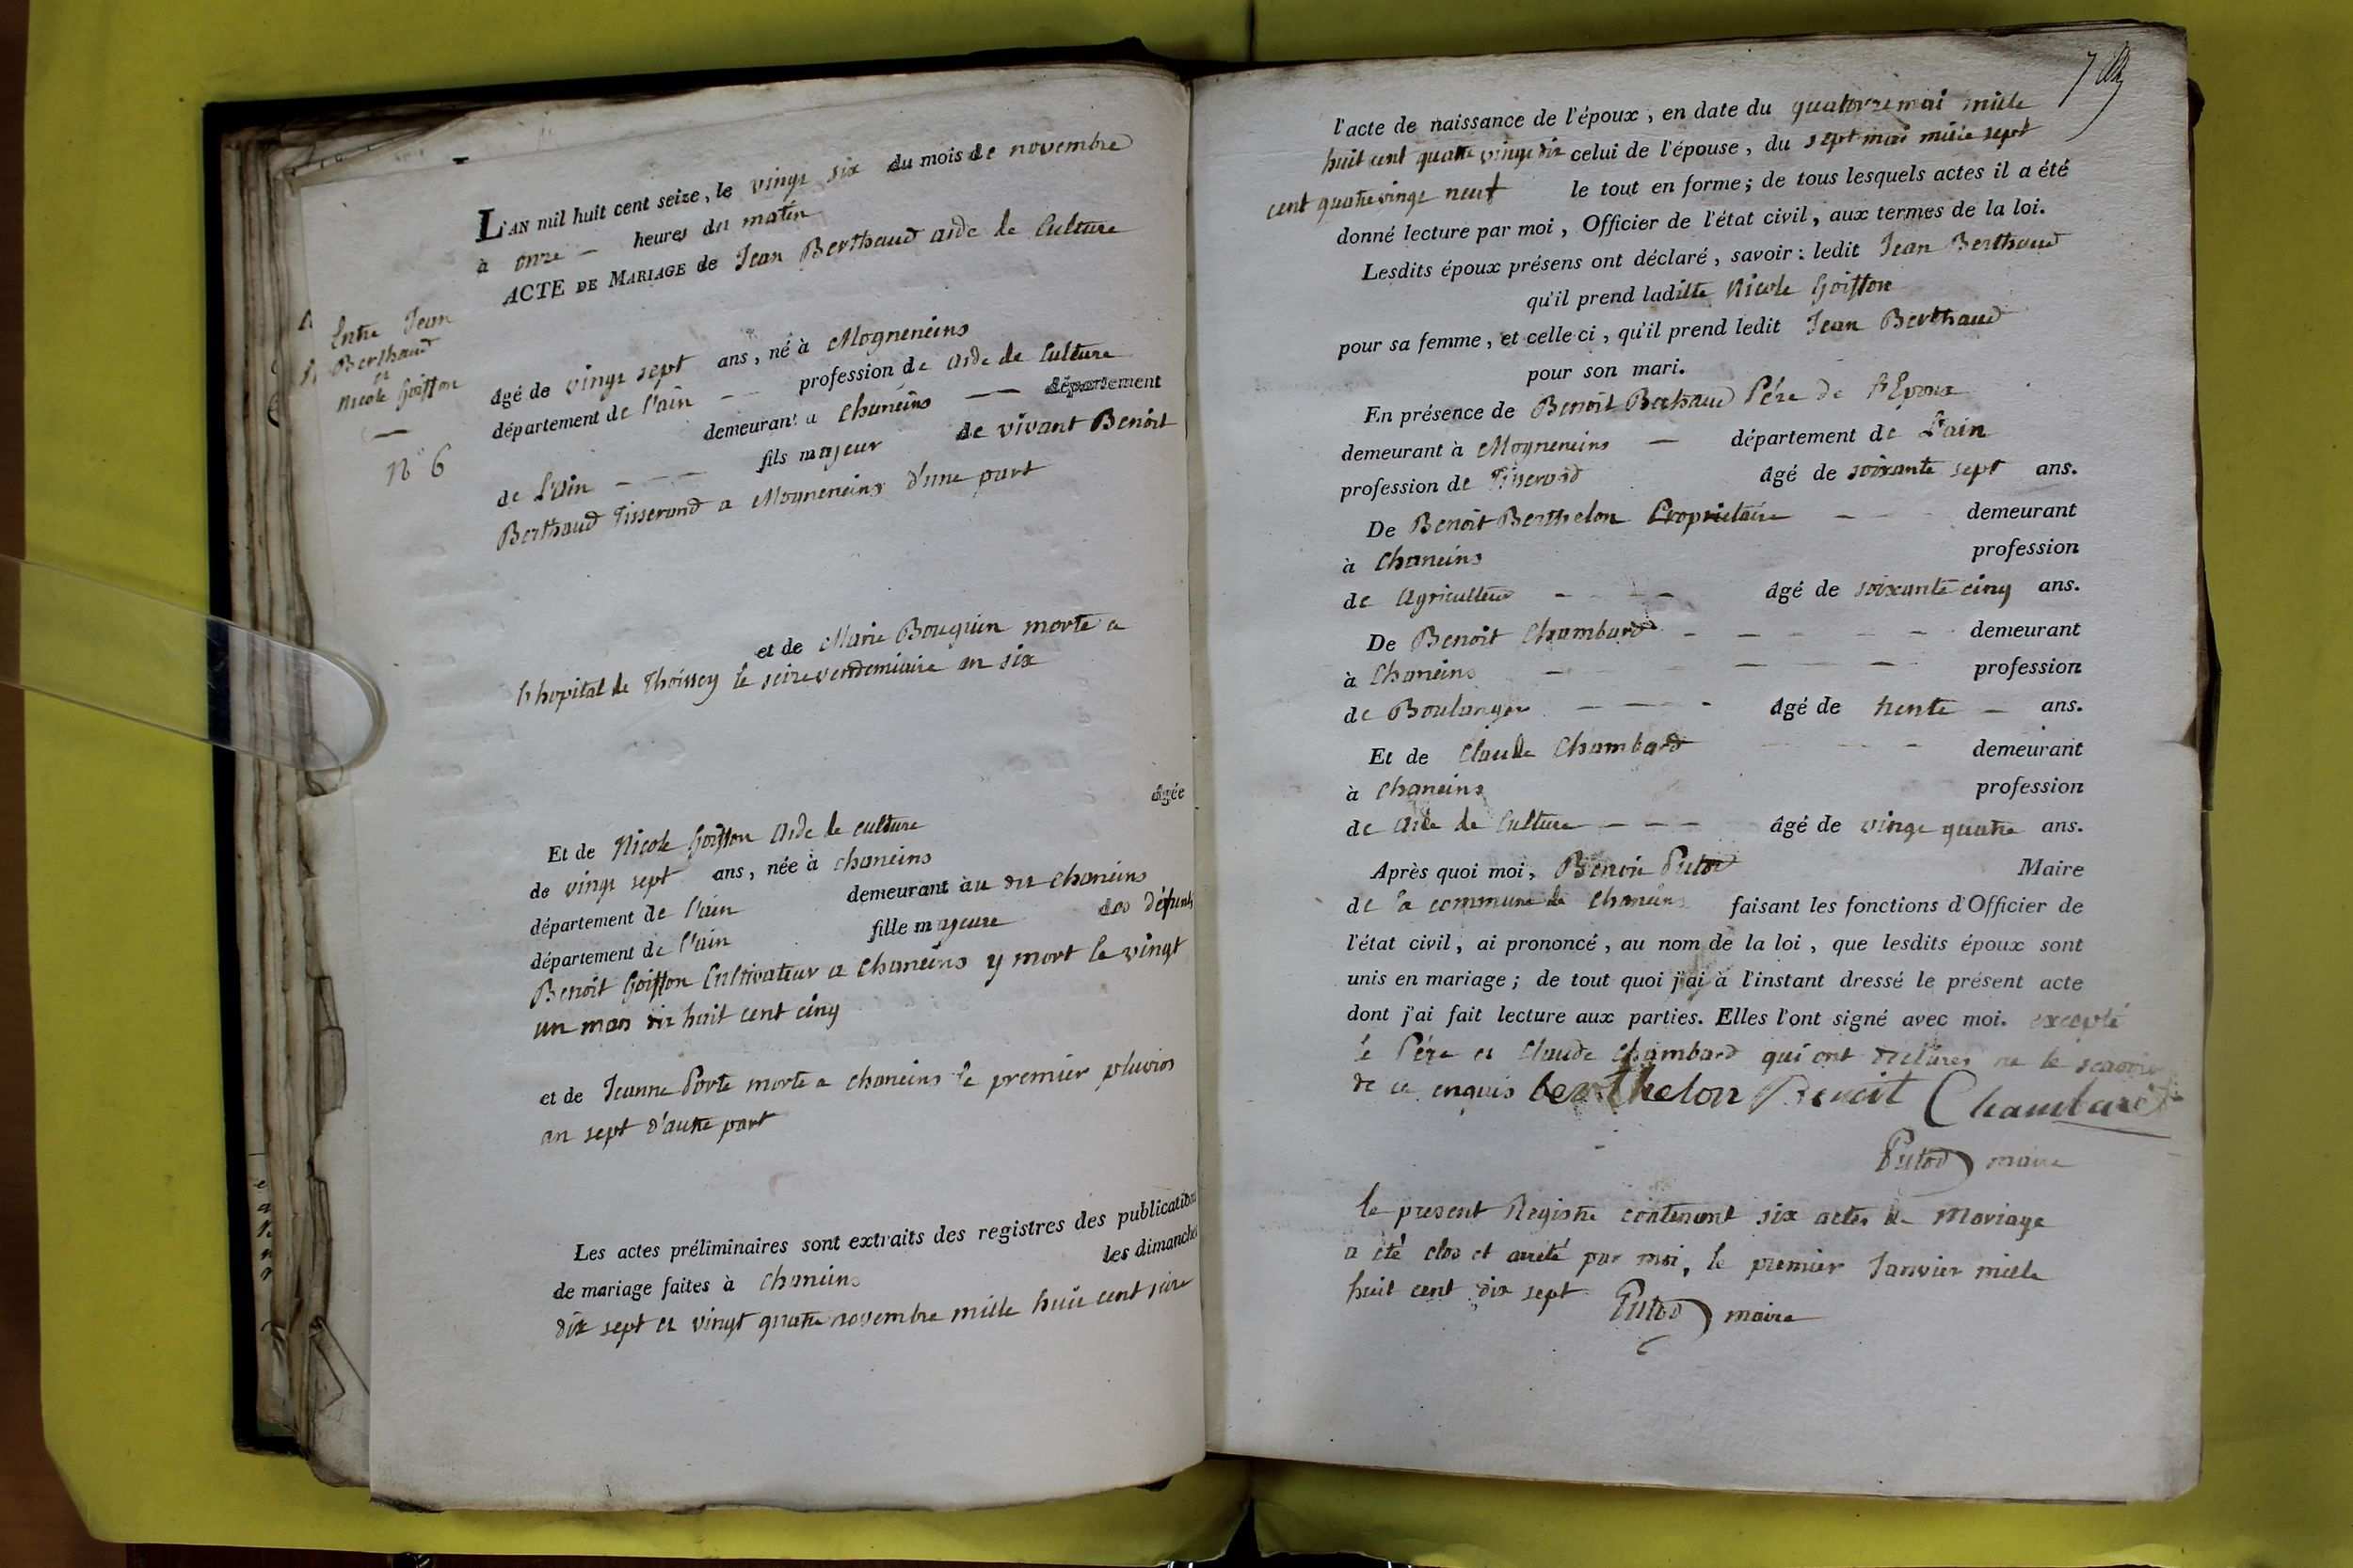 L'AN mil huit cent seize, le vingt six du mois de novembre
à onze — heures du matin
ACTE DE MARIAGE de Jean Berthaud aide de Culture
Entre Jean
Berthaud
et
Nicole Goiffon
N° 6
âgé de vingt sept ans, né à Mogneneins
département de l'ain — profession de aide de Culture
demeurant a Chaneins — département
de L'Ain — fils majeur de vivant Benoit
Berthaud Tisserand a Mogneneins d'une part
et de Marie Bouquin morte a
l'hopital de Thoissey le seize vendemiaire an six
Et de Nicole Goiffon aide de culture âgée
de vingt sept ans, née à chaneins
département de l'ain demeurant au dit Chaneins
département de l'ain fille majeure des défunts
Benoit Goiffon Cultivateur a Chaneins y mort le vingt
un mars dix huit cent cinq
et de Jeanne Porte morte a chaneins le premier pluvios
an sept d'autre part
Les actes préliminaires sont extraits des registres des publications
de mariage faites à Chaneins les dimanches
dix sept et vingt quatre novembre mille huit cent seize
7
l'acte de naissance de l'époux, en date du quatorze mai mille
huit cent quatre vingt dix celui de l'épouse, du sept mai mille sept
cent quatre vingt neuf le tout en forme; de tous lesquels actes il a été
donné lecture par moi, Officier de l'état civil, aux termes de la loi.
Lesdits époux présens ont déclaré, savoir: ledit Jean Berthaud
qu'il prend laditte Nicole Goiffon
pour sa femme, et celle ci, qu'il prend ledit Jean Berthaud
pour son mari.
En présence de Benoit Berthaud Pére de l'Epoux
demeurant à Mogneneins — département de L'ain
profession de Tisserand âgé de soixante sept ans.
De Benoit Berthelon Propriétaire — demeurant
à Chaneins profession
de Agriculteur — âgé de soixante cinq ans.
De Benoit Chambard — demeurant
à Chaneins — profession
de Boulanger — âgé de trente — ans.
Et de Claude Chambard — demeurant
à Chaneins profession
de aide de Culture — âgé de vingt quatre ans.
Après quoi moi, Benoit Putod Maire
de la commune de Chaneins faisant les fonctions d'Officier de
l'état civil, ai prononcé, au nom de la loi, que lesdits époux sont
unis en mariage; de tout quoi j'ai à l'instant dressé le présent acte
dont j'ai fait lecture aux parties. Elles l'ont signé avec moi. excepté
le Pére et Claude Chambard qui ont declares ne le scavoir
de ce enquis berthelon Benoit Chambard
Putod maire
le present Registre contenant six actes de Mariage
a été clos et arreté par moi, le premier Janvier mille
huit cent dix sept Putod maire